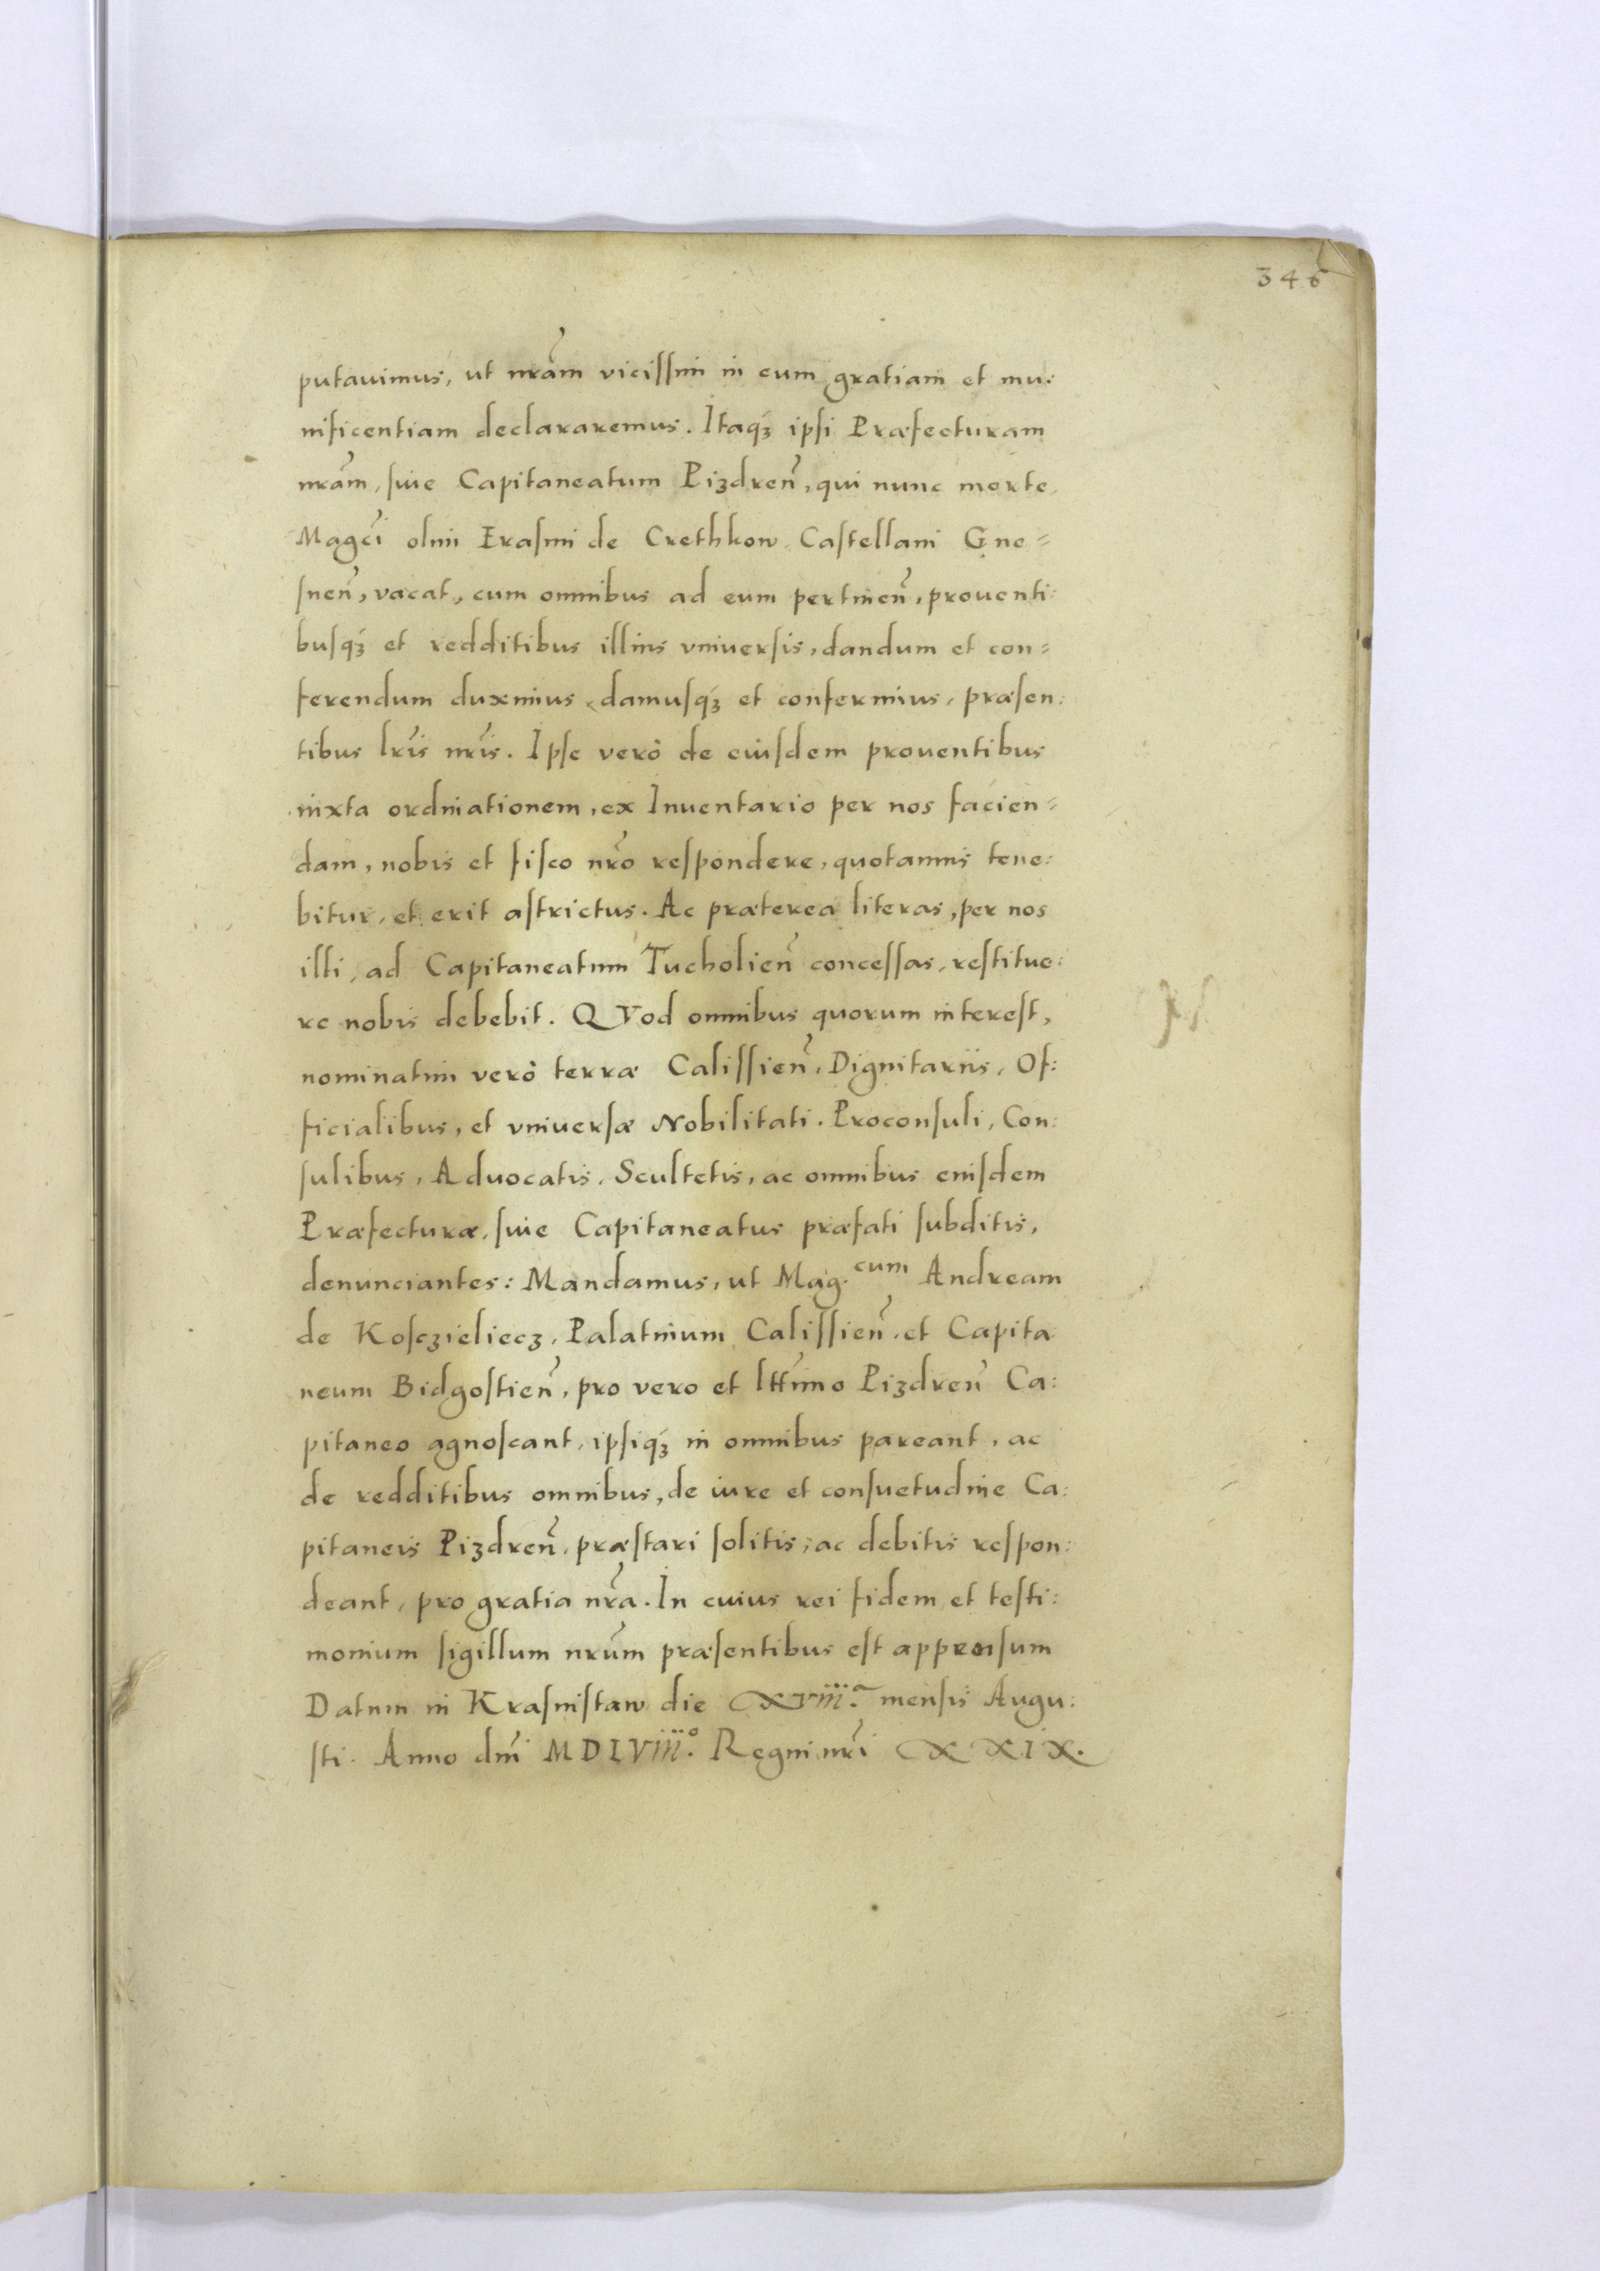 346
putauimus, ut nr̃am vicissim in eum gratiam et mu:
nificentiam declararemus. Itaqꝫ ipsi Præfecturam
nr̃am, siue Capitaneatum Pizdreñ, qui nunc morte
Magc̃i olim Erasmi de Crethkow, Castellani Gne=
sneñ, vacat, cum omnibus ad eum pertineñ, prouenti:
busqꝫ et redditibus illius vniuersis, dandum et con=
ferendum duximus, damusqꝫ et conferimus, præsen:
tibus lr̃is nr̃is. Ipse verò de eiusdem prouentibus
iuxta ordinationem, ex Inuentario per nos facien=
dam, nobis et fisco nr̃o respondere, quotannis tene:
bitur, et erit astrictus. Ac præterea literas, per nos
illi, ad Capitaneatum Tucholieñ concessas, restitue:
re nobis debebit. QVod omnibus quorum interest,
nominatim verò terræ Calissieñ, Dignitariis, Of:
ficialibus, et vniuersæ Nobilitati. Proconsuli, Con:
sulibus, Aduocatis, Scultetis, ac omnibus eiusdem
Præfecturæ, siue Capitaneatus præfati subditis,
denunciantes: Mandamus, ut Mag.cum Andream
de Kosczieliecz, Palatinum Calissieñ, et Capita
neum Bidgostieñ, pro vero et lt̃timo Pizdreñ Ca:
pitaneo agnoscant, ipsiqꝫ in omnibus pareant, ac
de redditibus omnibus, de iure et consuetudine Ca:
pitaneis Pizdreñ, præstari solitis, ac debitis respon:
deant, pro gratia nr̃a. In cuius rei fidem et testi:
monium sigillum nr̃um præsentibus est appensum
Datum in Krasnistaw die XVIII.a mensis Augu:
sti. Anno dñi MDLVIII.o Regni nr̃i XXIX.